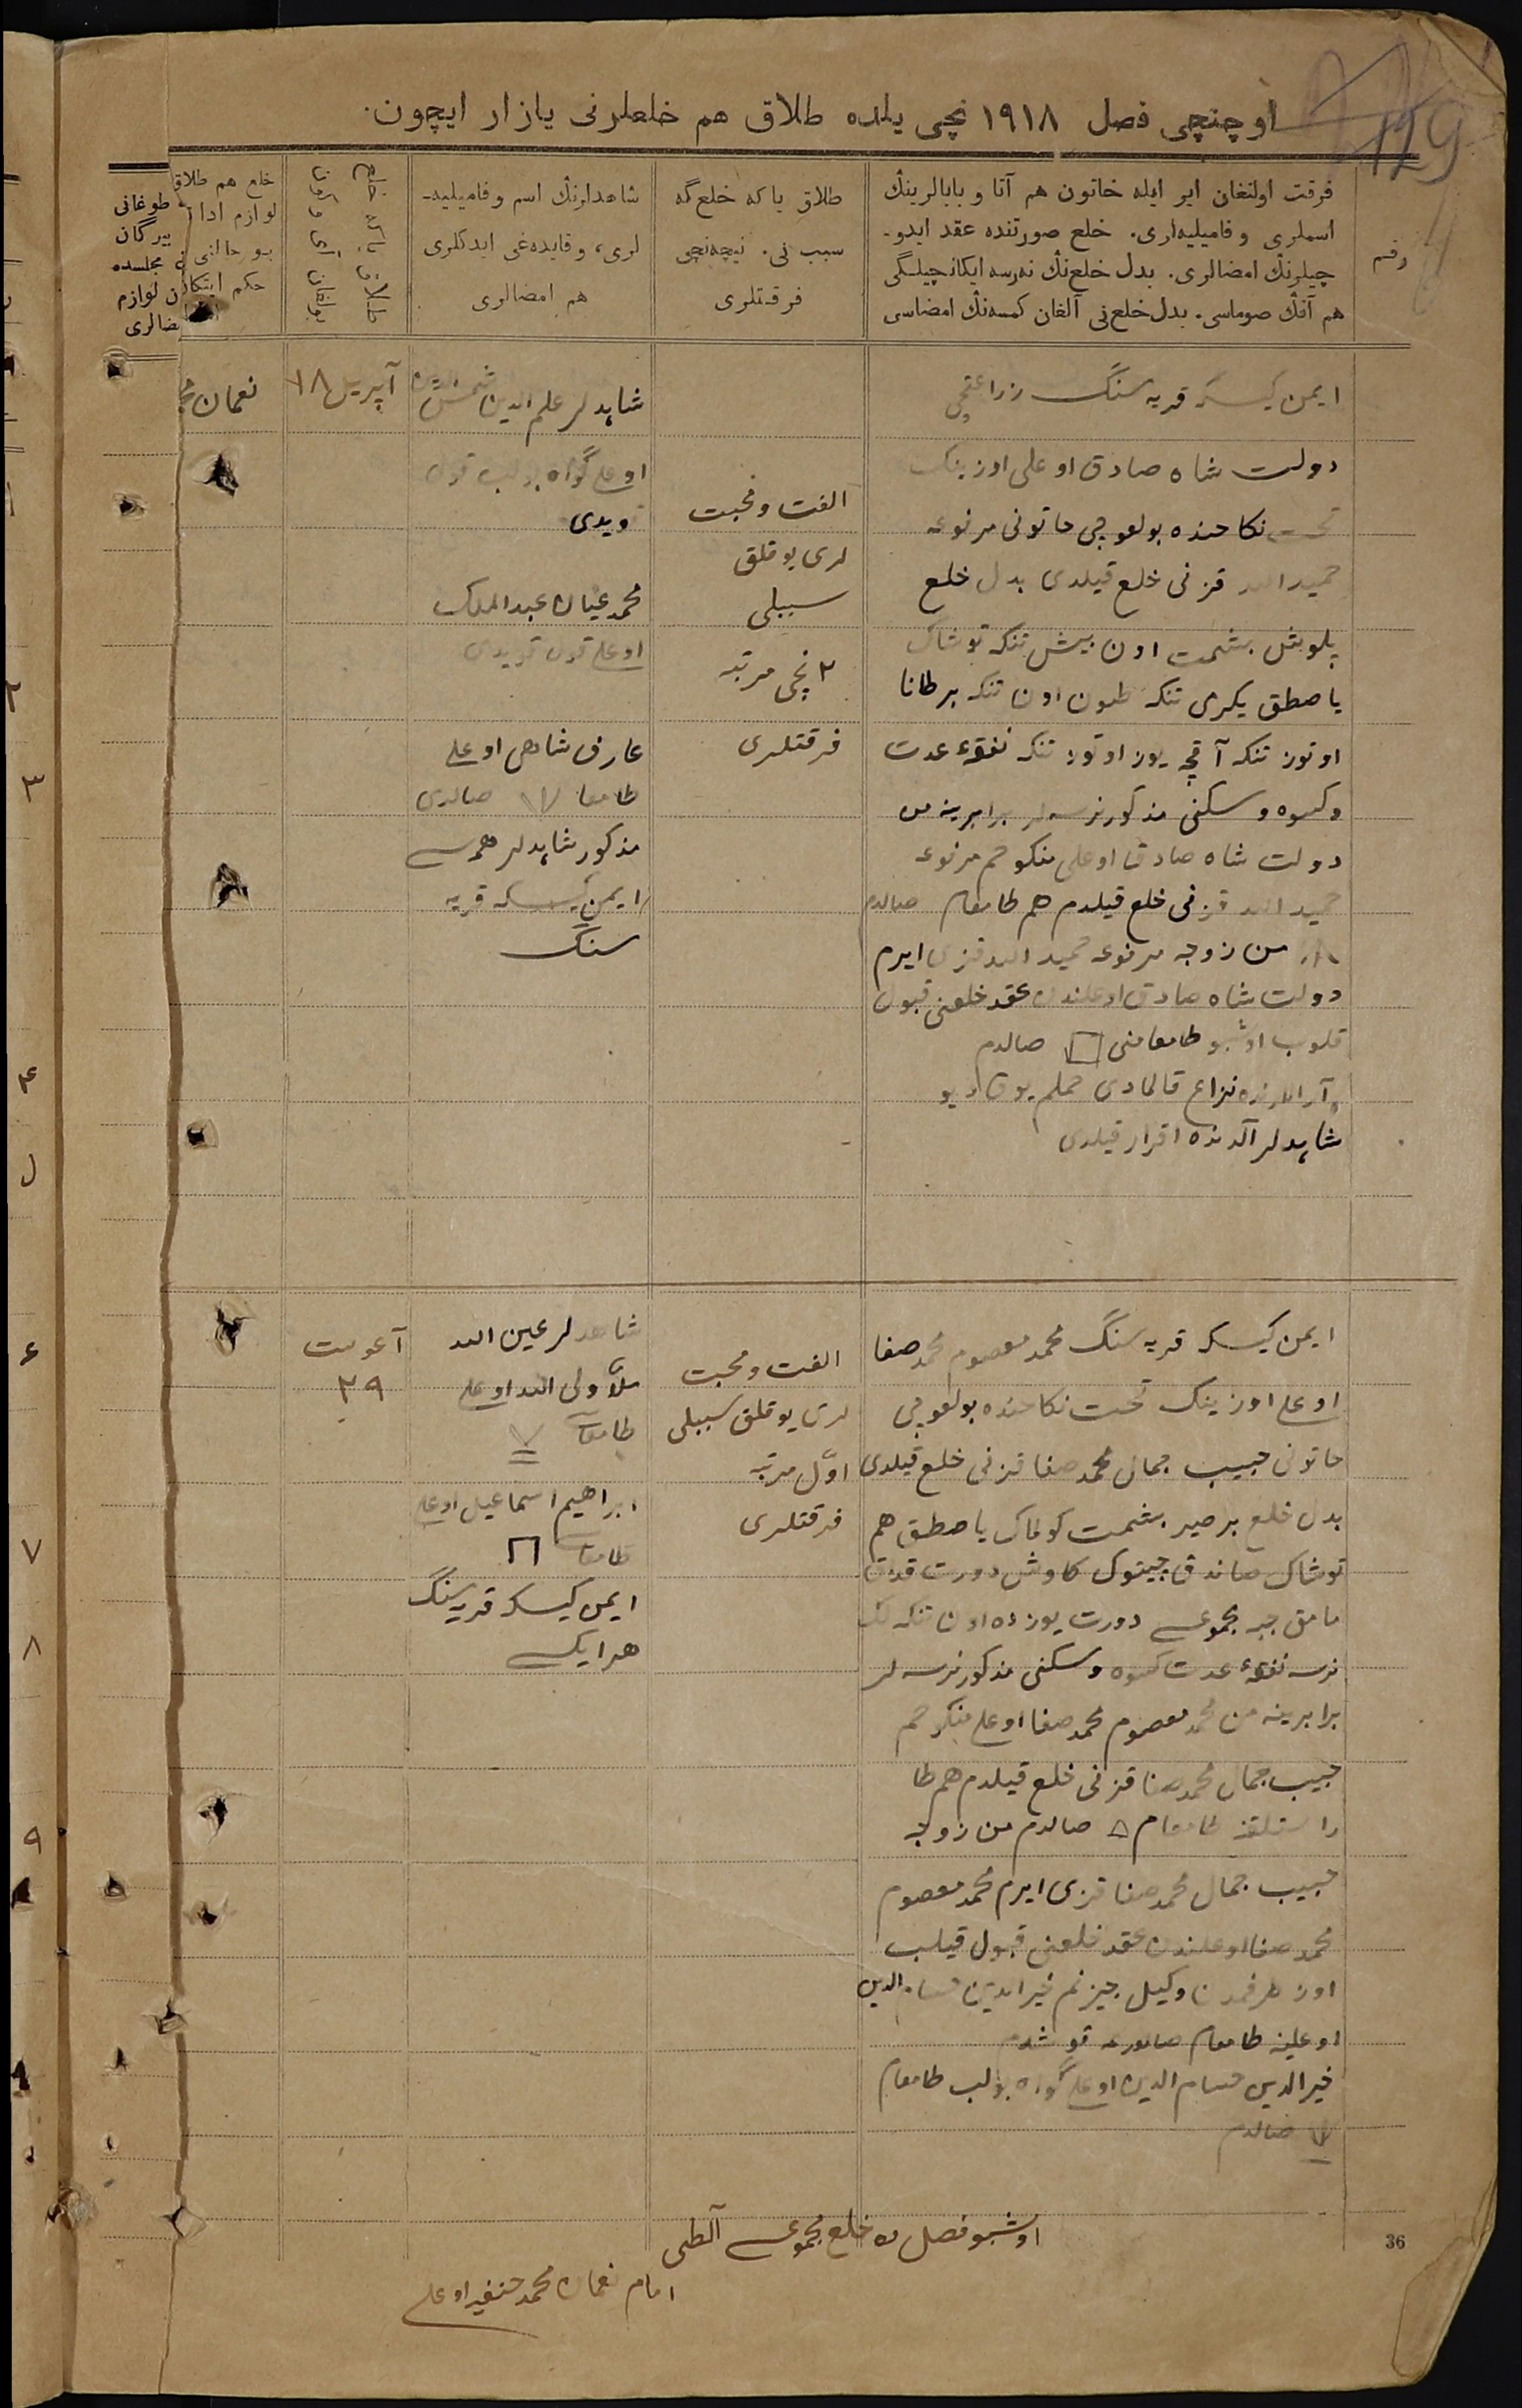 اوچنچی فصل ۱۹۱۸ نچی یلده طلاق هم خلعلرنی یازار ایچون.
129
رقم
فرقت اولنغان ایر ایله خاتون هم آتا و بابالرینڭ
اسملری و فامیلیه‌لری. خلع صورتنده عقد ایدو-
چیلرنڭ امضالری. بدل خلع‌نڭ نه‌رسه ایکانچیلگی
هم آنڭ صوماسی. بدل خلع‌نی آلغان کمسه‌نڭ امضاسی
طلاق یا که خلع‌گه
سبب نی. نیچه‌نچی
فرقتلری
شاهدلرنڭ اسم و فامیلیه-
لری، و قایده‌غی ایدکلری
هم امضالری
خلع هم طلاق
لوازم ادا
حکم
طوغانی
بیرگان
مجلسده
لوازم
ضالری
ایمن کیسکه قریه سنگ زراعتچی
دولت شاه صادق اوغلی اوزینک
تحت نکاحنده بولغوچی خاتونی مرفوعه
حمید الله قزنی خلع قیلدی بدل خلع
بشمت اون بیش تنکه توشاک
یاصطق یکرمی تنکه طون اون تنکه بر طانا
اوتوز تنکه آقچه یوز اوتوز تنکه نفقهٔ عدت
وکسوه وسکنی مذکور نرسه‌لر برابرینه من
دولت شاه صادق اوغلی منکوحم مرفوعه
حمید الله قزنی خلع قیلدم هم طامغام صالدم
من زوجه مرفوعه حمید الله قزی ایرم
دولت شاه صادق اوغلندن عقد خلعنی قبول
قلوب اوشبو طامغامنی صالدم
آرالارنده نزاع قالمادی حملم یوق دیو
شاهدلر آلدنده اقرار قیلدی
الفت ومحبت
لری یوقلق
سببلی
۲ نچی مرتبه
فرقتلری
شاهدلر علم الدین شمس الدین
اوغلی گواه بولب قول
قویدی
محمد عیان عبدالملک
اوغلی قول قویدی
عارف شاهی اوغلی
طامغا صالدی
مذکور شاهدلر همسی
ایمن کیسکه قریه
سنگ
آپریل ۱۸
نعمان
ایمن کیسکه قریه سنگ محمد معصوم محمد صفا
اوغلی اوزینک تحت نکاحنده بولغوچی
خاتونی حبیب جمال محمد صفا قزنی خلع قیلدی
بدل خلع بر بشمت کولماک یاصطق هم
توشاک صاندق چیتوک کاوش دورت قداق
مامق مجموعی دورت یوز اون تنکه لک
نرسه نفقهٔ عدت کسوه وسکنی مذکور نرسه لر
برابرینه من محمد معصوم محمد صفا اوغلی منکوحم
حبیب جمال محمد صفا قزنی خلع قیلدم هم
راستلقغه طامغام صالدم من زوجه
حبیب جمال محمد صفا قزی ایرم محمد معصوم
محمد صفا اوغلندن عقد خلعنی قبول قیلب
اوز طرفمدن وکیل جیزنم خیرالدین حسام الدین
اوغلینه طامغام صالورغه قوشدم
خیرالدین حسام الدین اوغلی گواه بولب طامغام
صالدم
الفت ومحبت
لری یوقلق سببلی
اوّل مرتبه
فرقتلری
شاهدلر عین الله
ملّا ولی الله اوغلی
طامغاسی
ابراهیم اسماعیل اوغلی
طامغاسی
ایمن کیسکه قریه سنگ
هر ایکسی
آغوست
۲۹
اوشبو فصل ده خلع مجموعی آلطی
امام نعمان محمد حنفیه اوغلی
36
۳
۴
۶
۷
۸
۹